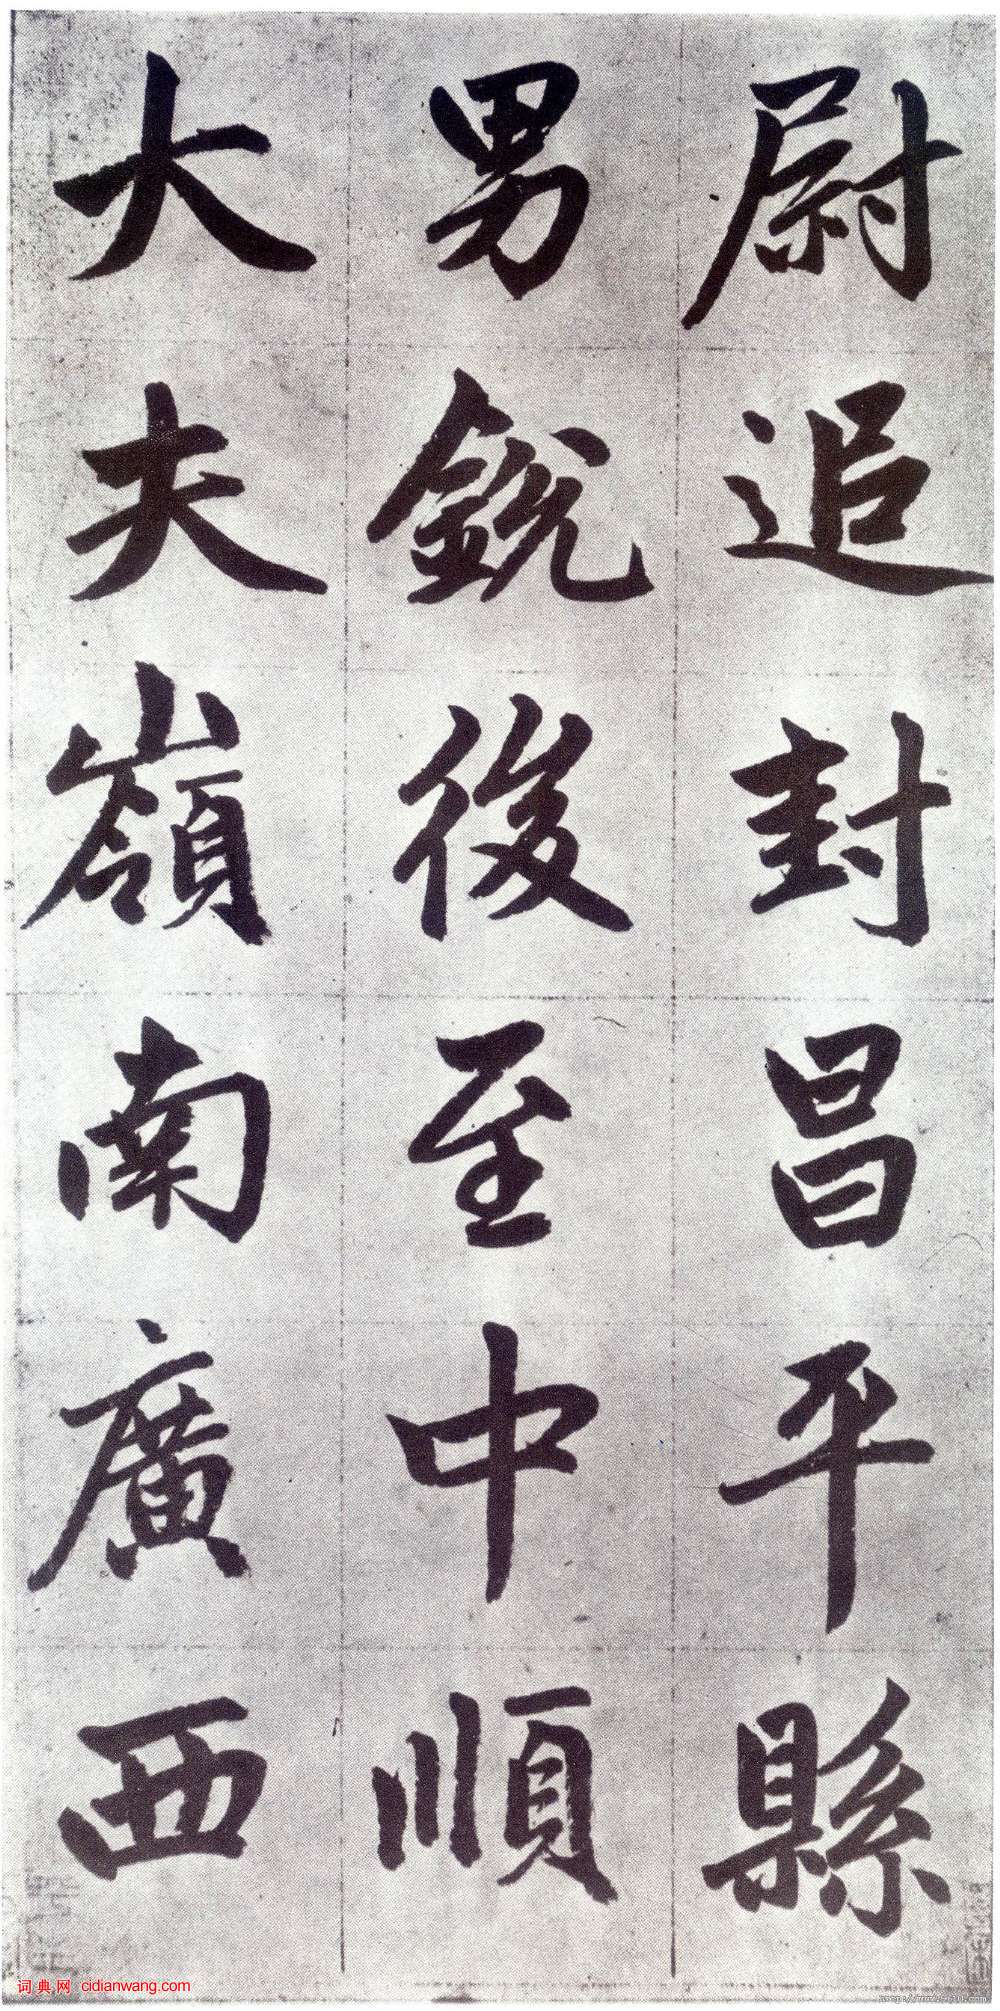 尉追封昌平縣
男銳後至中順
大夫嶺南廣西
词典网 cidianwang.com